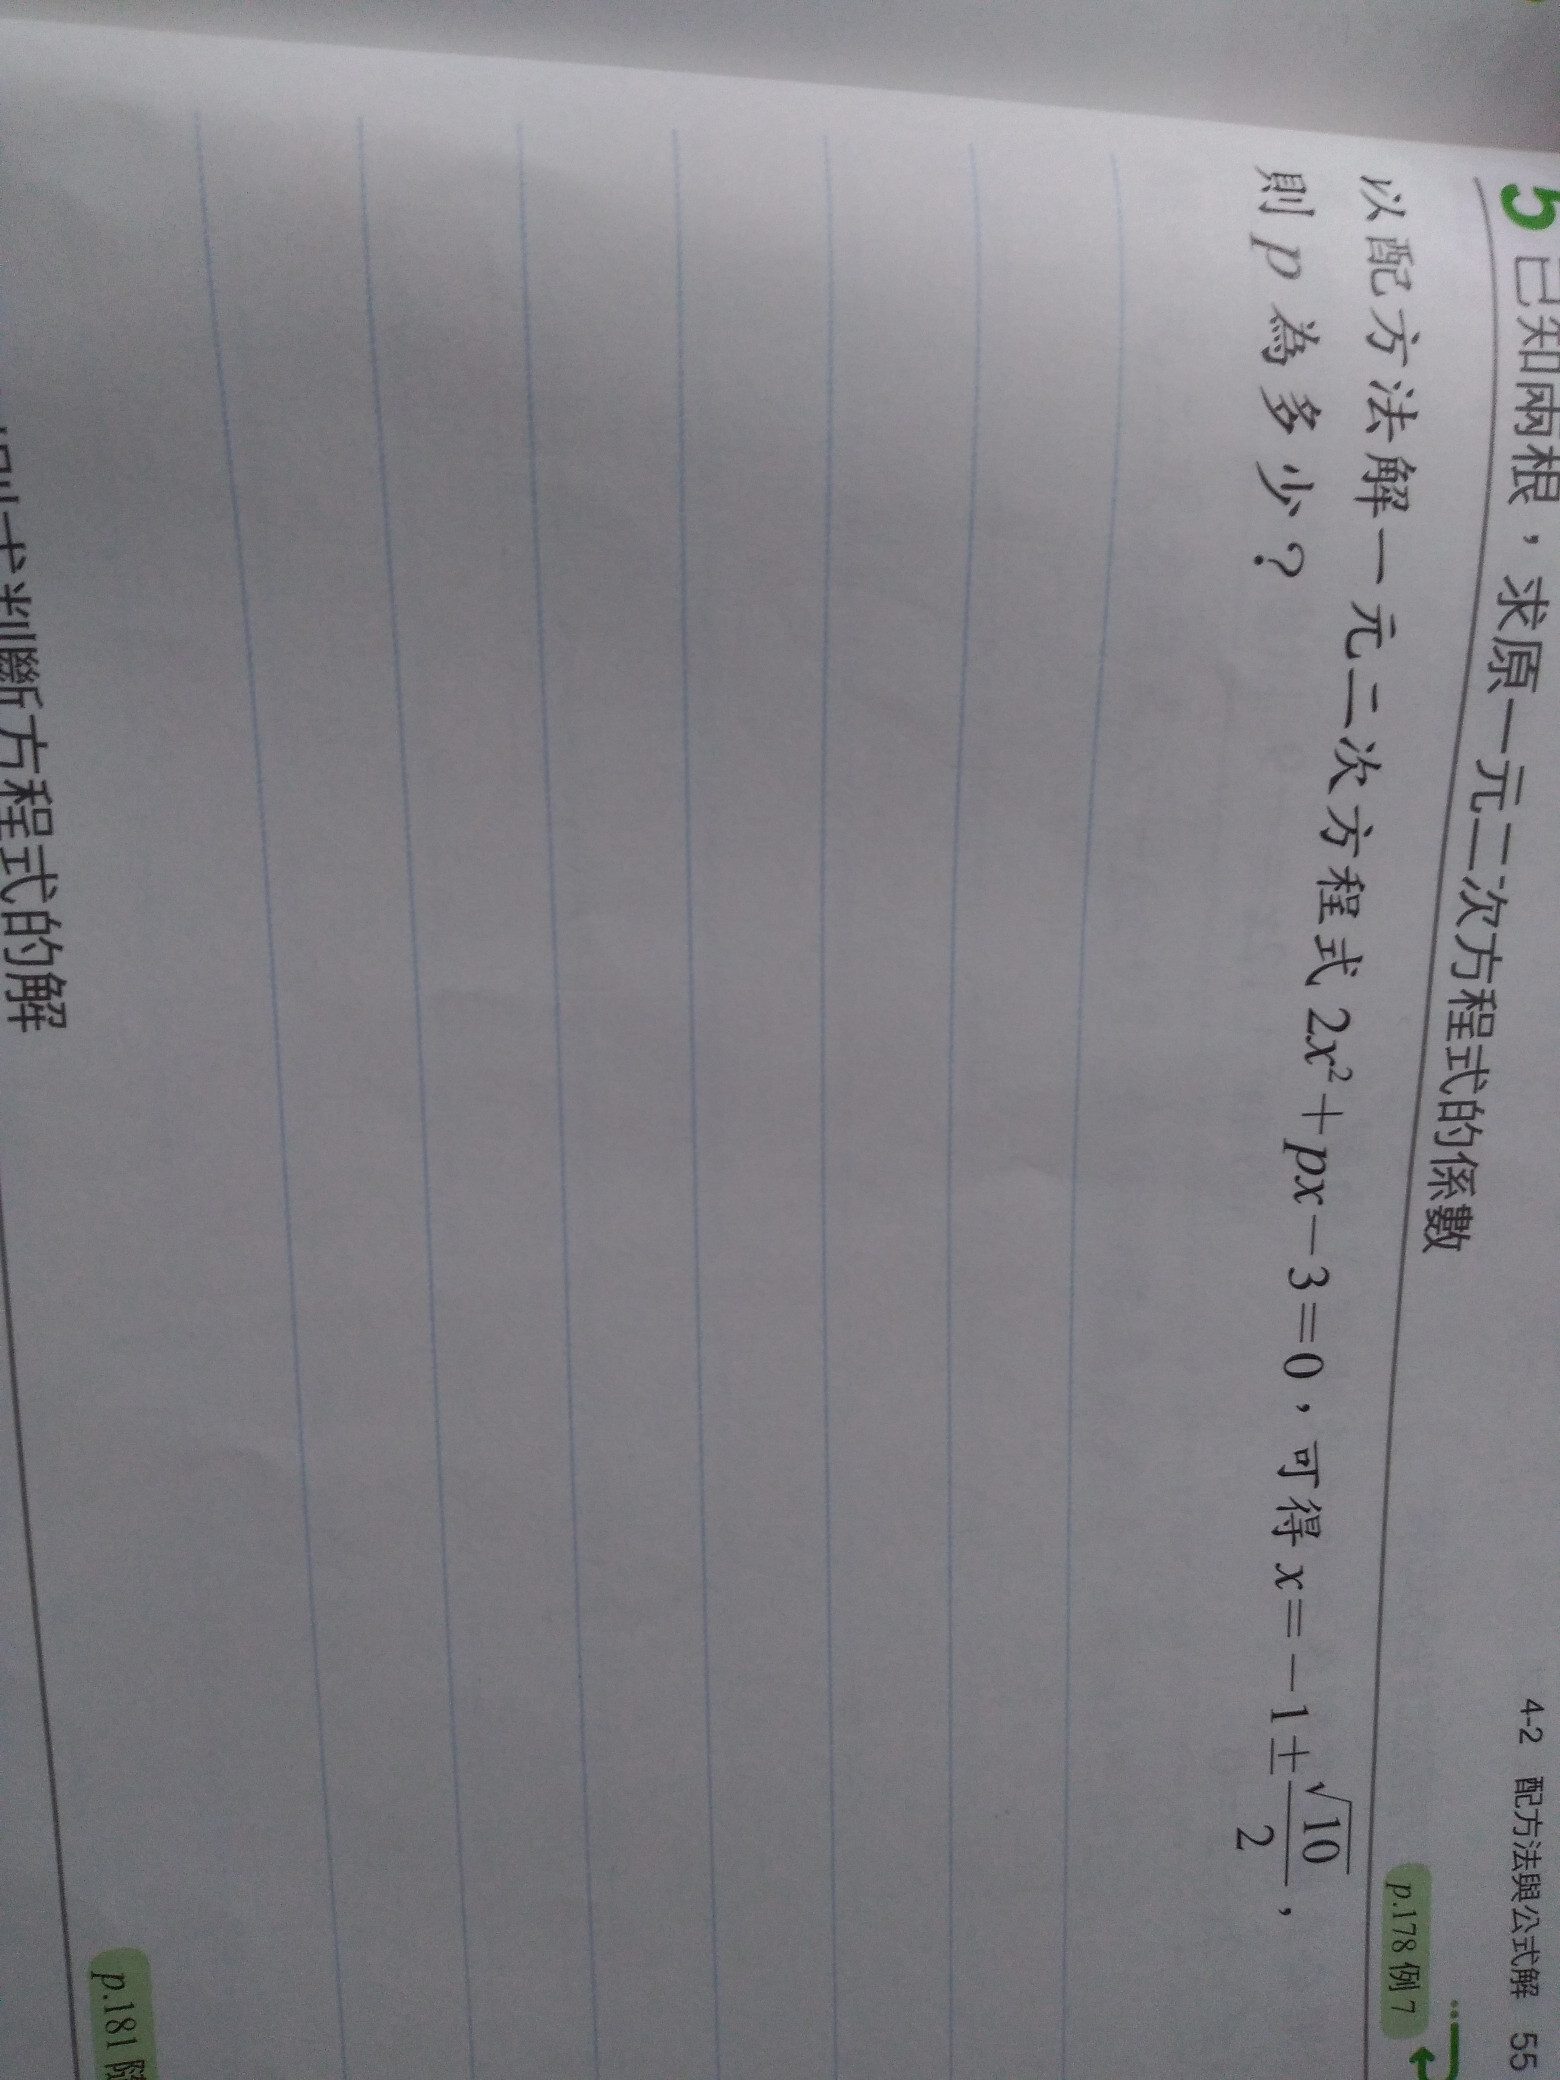 4-2 配方法與公式解 55
5 已知兩根，求原一元二次方程式的係數
p.178 例 7
以配方法解一元二次方程式 2x²＋px－3＝0，可得 x＝－1±√10/2，
則 p 為多少？
判斷方程式的解
p.181